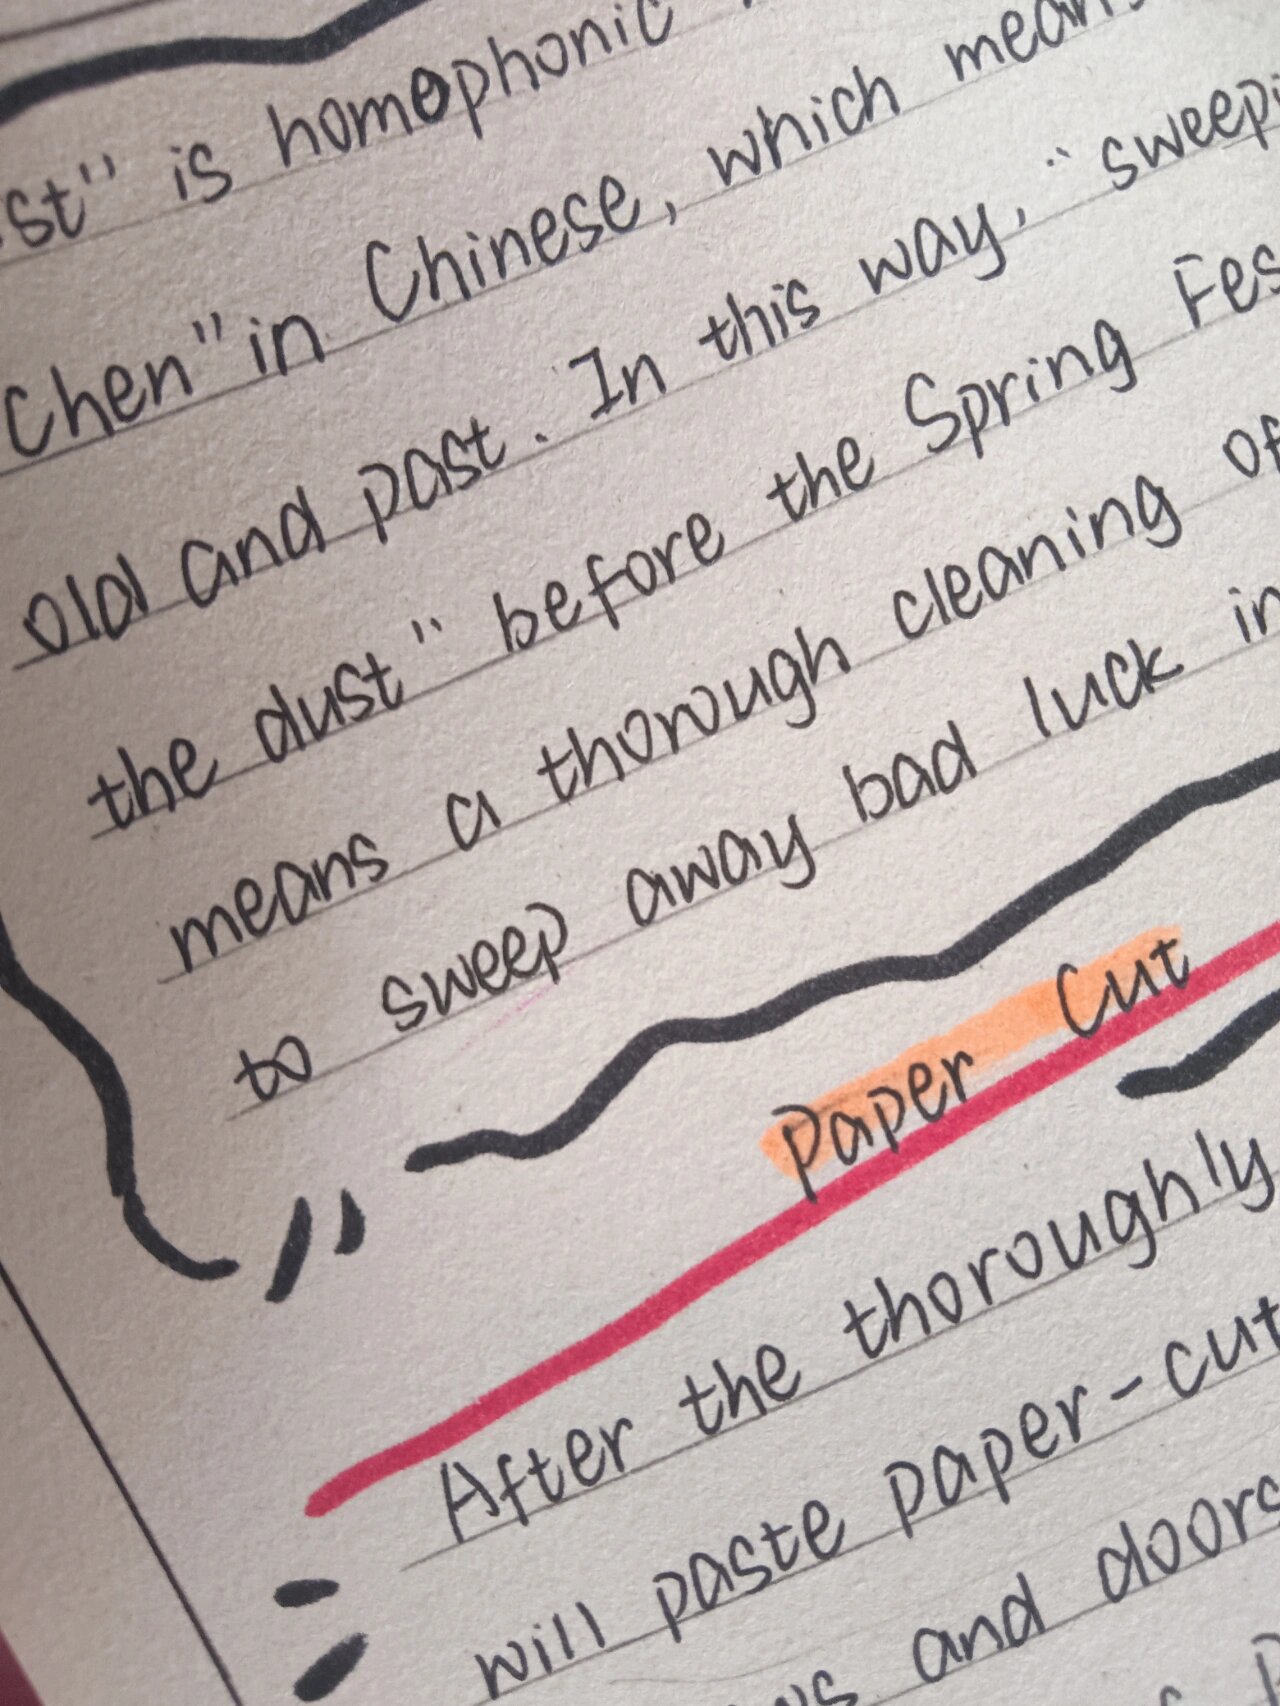 st" is homophonic
Chen" in Chinese, which mean
old and past. In this way, "sweepi
the dust" before the Spring Fes
means a thorough cleaning of
to sweep away bad luck in
Paper Cut
After the thoroughly
will paste paper-cut
and doors